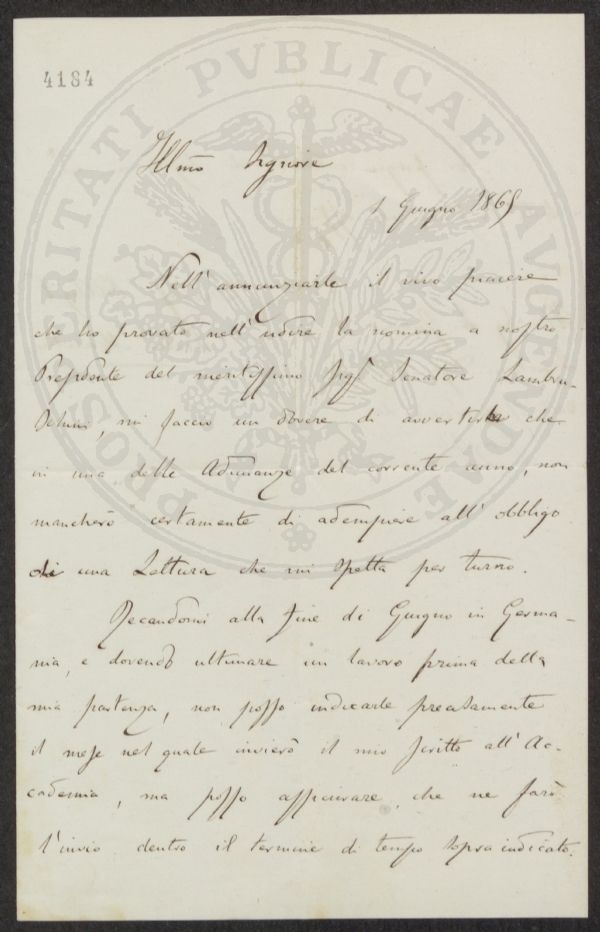 4184
PROSPERITATI PVBLICAE AVGENDAE
Illmo Signore
1 Giugno 1865
Nell' annunziarle il vivo piacere
che ho provato nell' udire la nomina a nostro
Presidente del meritissimo Sigr Senatore Lambru-
schini, mi faccio un dovere di avvertirla che
in una delle Adunanze del corrente anno, non
mancherò certamente di adempiere all' obbligo
di una Lettura che mi spetta per turno.
Recandomi alla fine di Giugno in Germa-
nia, e dovendo ultimare un lavoro prima della
mia partenza, non posso indicarle precisamente
il mese nel quale invierò il mio scritto all' Ac-
cademia, ma posso assicurare, che ne farò
l'invio dentro il termine di tempo sopraindicato.